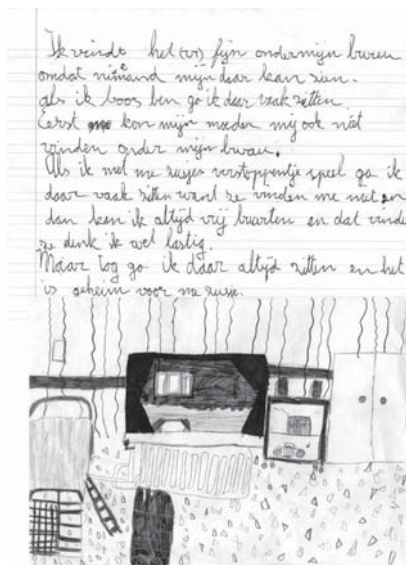 Ik veindt het (vr) fijn ondermijn buren
omdat niemand mijn daar kan zien.
als ik boos ben go ik daar vaak zitten.
Eerst kon mijn moeder mij ook niet
vinden onder mijn burau.
Als ik met me zusjes verstoppentje speel ga ik
daar vaak zitten want ze vinden me niet en
dan keen ik altijd vrij buurten en dat vinden
ze denk ik wel lastig.
Maar tog go ik daar altijd zitten en het
is geheim voor me zusje.